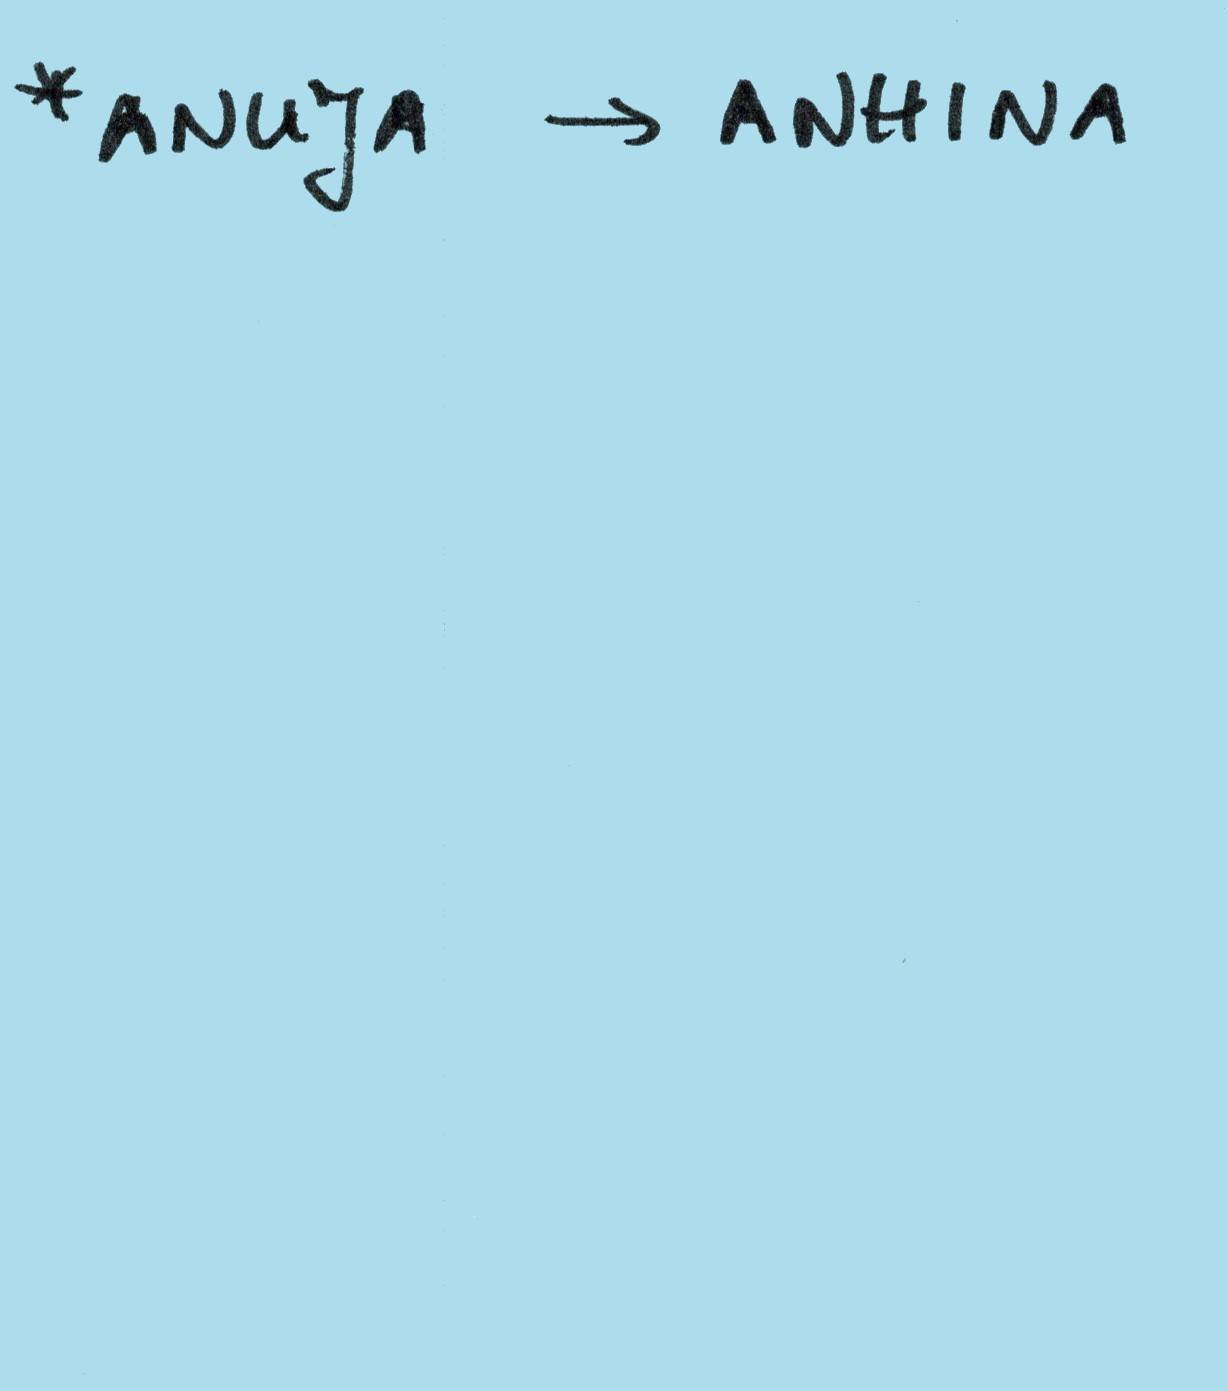 *ANUJA → ANHINA